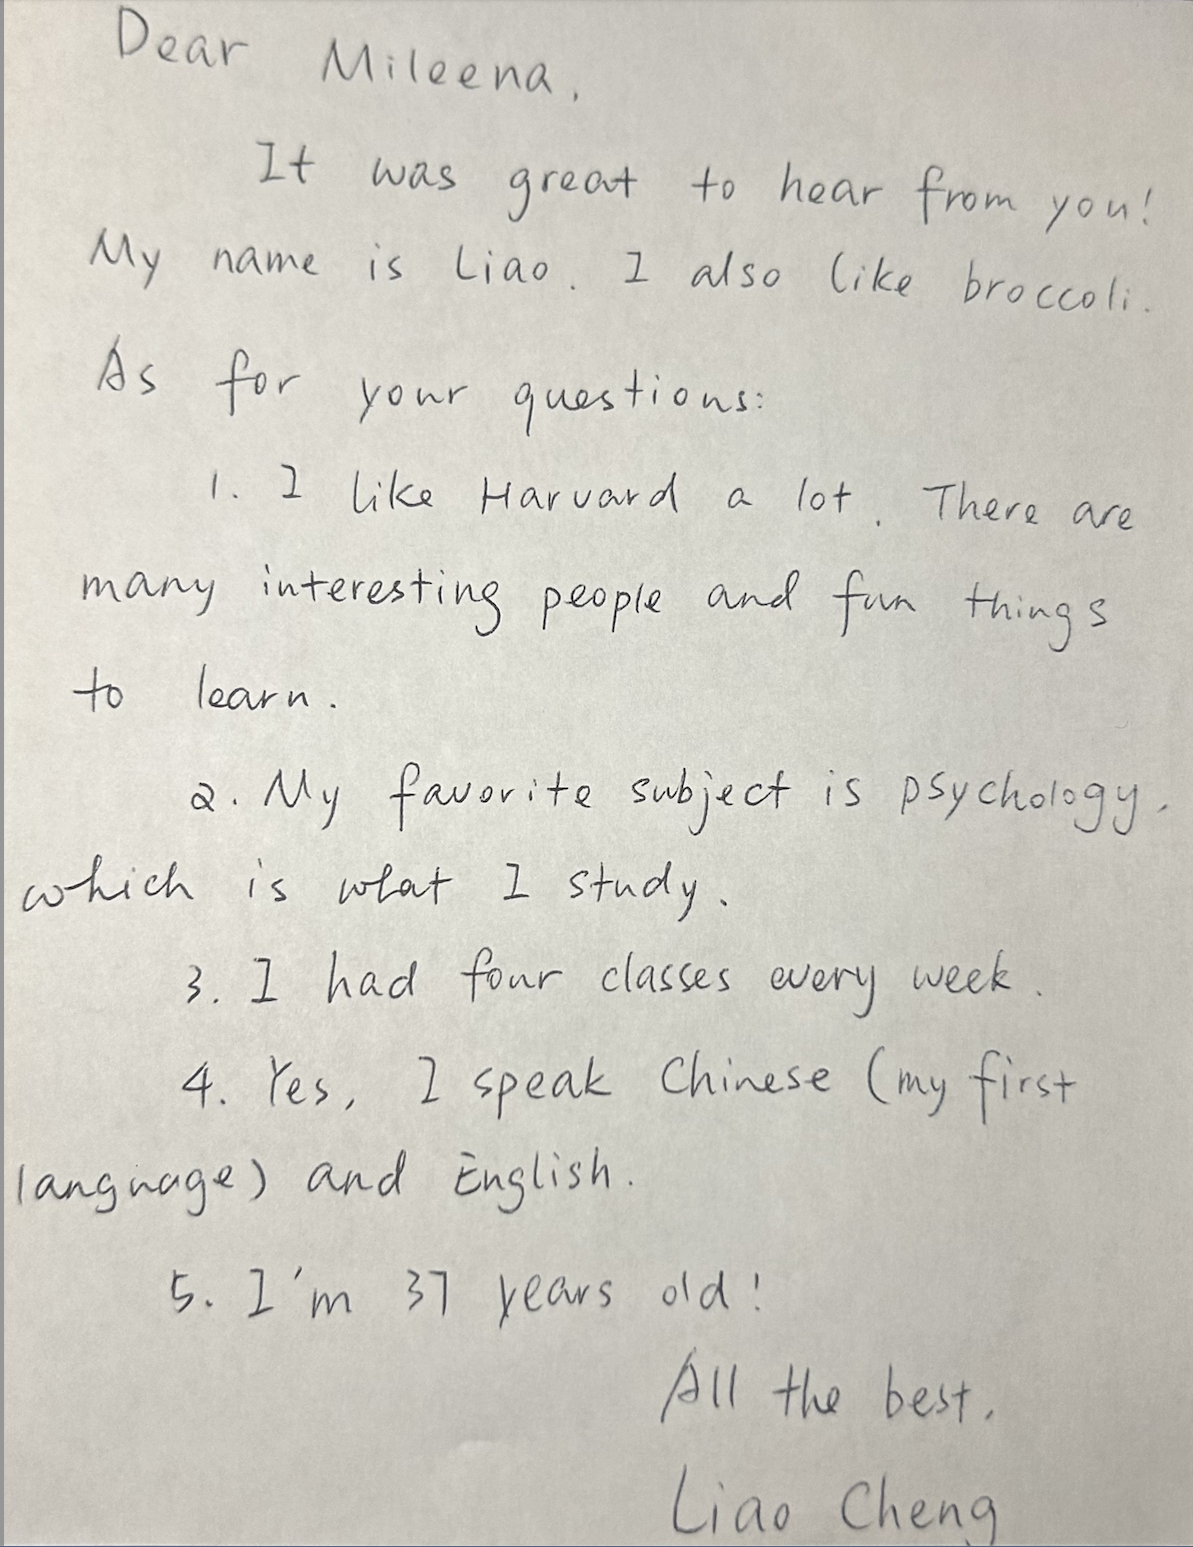 Dear Mileena,
It was great to hear from you!
My name is Liao. I also like broccoli.
As for your questions:
1. I like Harvard a lot. There are
many interesting people and fun things
to learn.
2. My favorite subject is psychology,
which is what I study.
3. I had four classes every week.
4. Yes, I speak Chinese (my first
language) and English.
5. I'm 37 years old!
All the best,
Liao Cheng